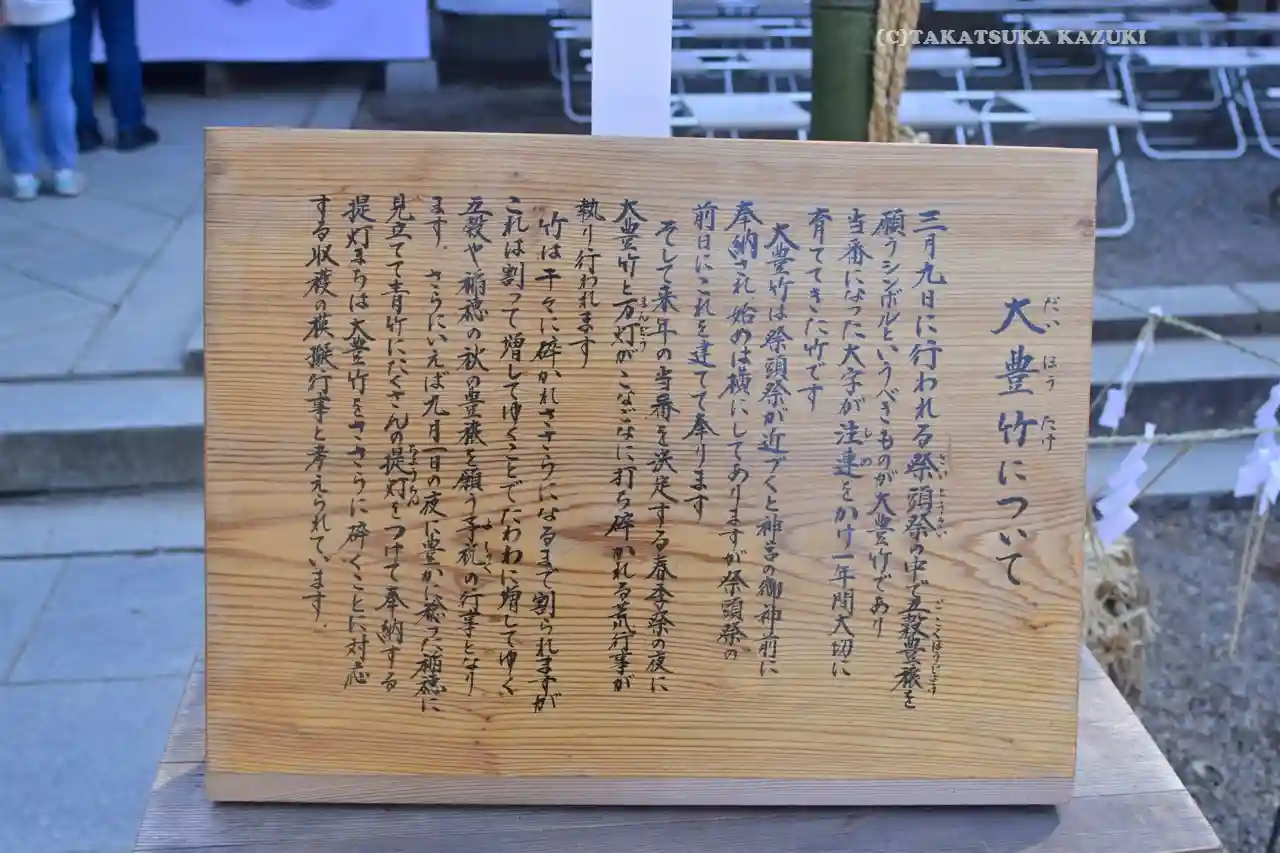 (C)TAKATSUKA KAZUKI
大豊竹について
だいほうたけ
三月九日に行われる祭頭祭の中で五穀豊穣を
ごくほうじょう
願うシンボルというべきものが大豊竹であり
当番になった大字が注連をかけ一年間大切に
しめ
育ててきた竹です
大豊竹は祭頭祭が近づくと神宮の御神前に
奉納され、始めは横にしてありますが祭頭祭の
前日にこれを建てて奉ります
そして来年の当番を決定する春季祭の夜に
大豊竹と万灯がこなごなに打ち砕かれる荒行事が
まんどう
執り行われます
竹は千々に砕かれささらになるまで割られますが
これは割って増してゆくことでたわわに増してゆく
五穀や稲穂の秋の豊穣を願う予祝の行事となり
よしゅく
ます。さらにいえば九月一日の夜に豊かに稔った稲穂に
見立てて青竹にたくさんの提灯をつけて奉納する
ちょうちん
提灯まちは大豊竹をささらに砕くことに対応
する収穫の模擬行事と考えられています。